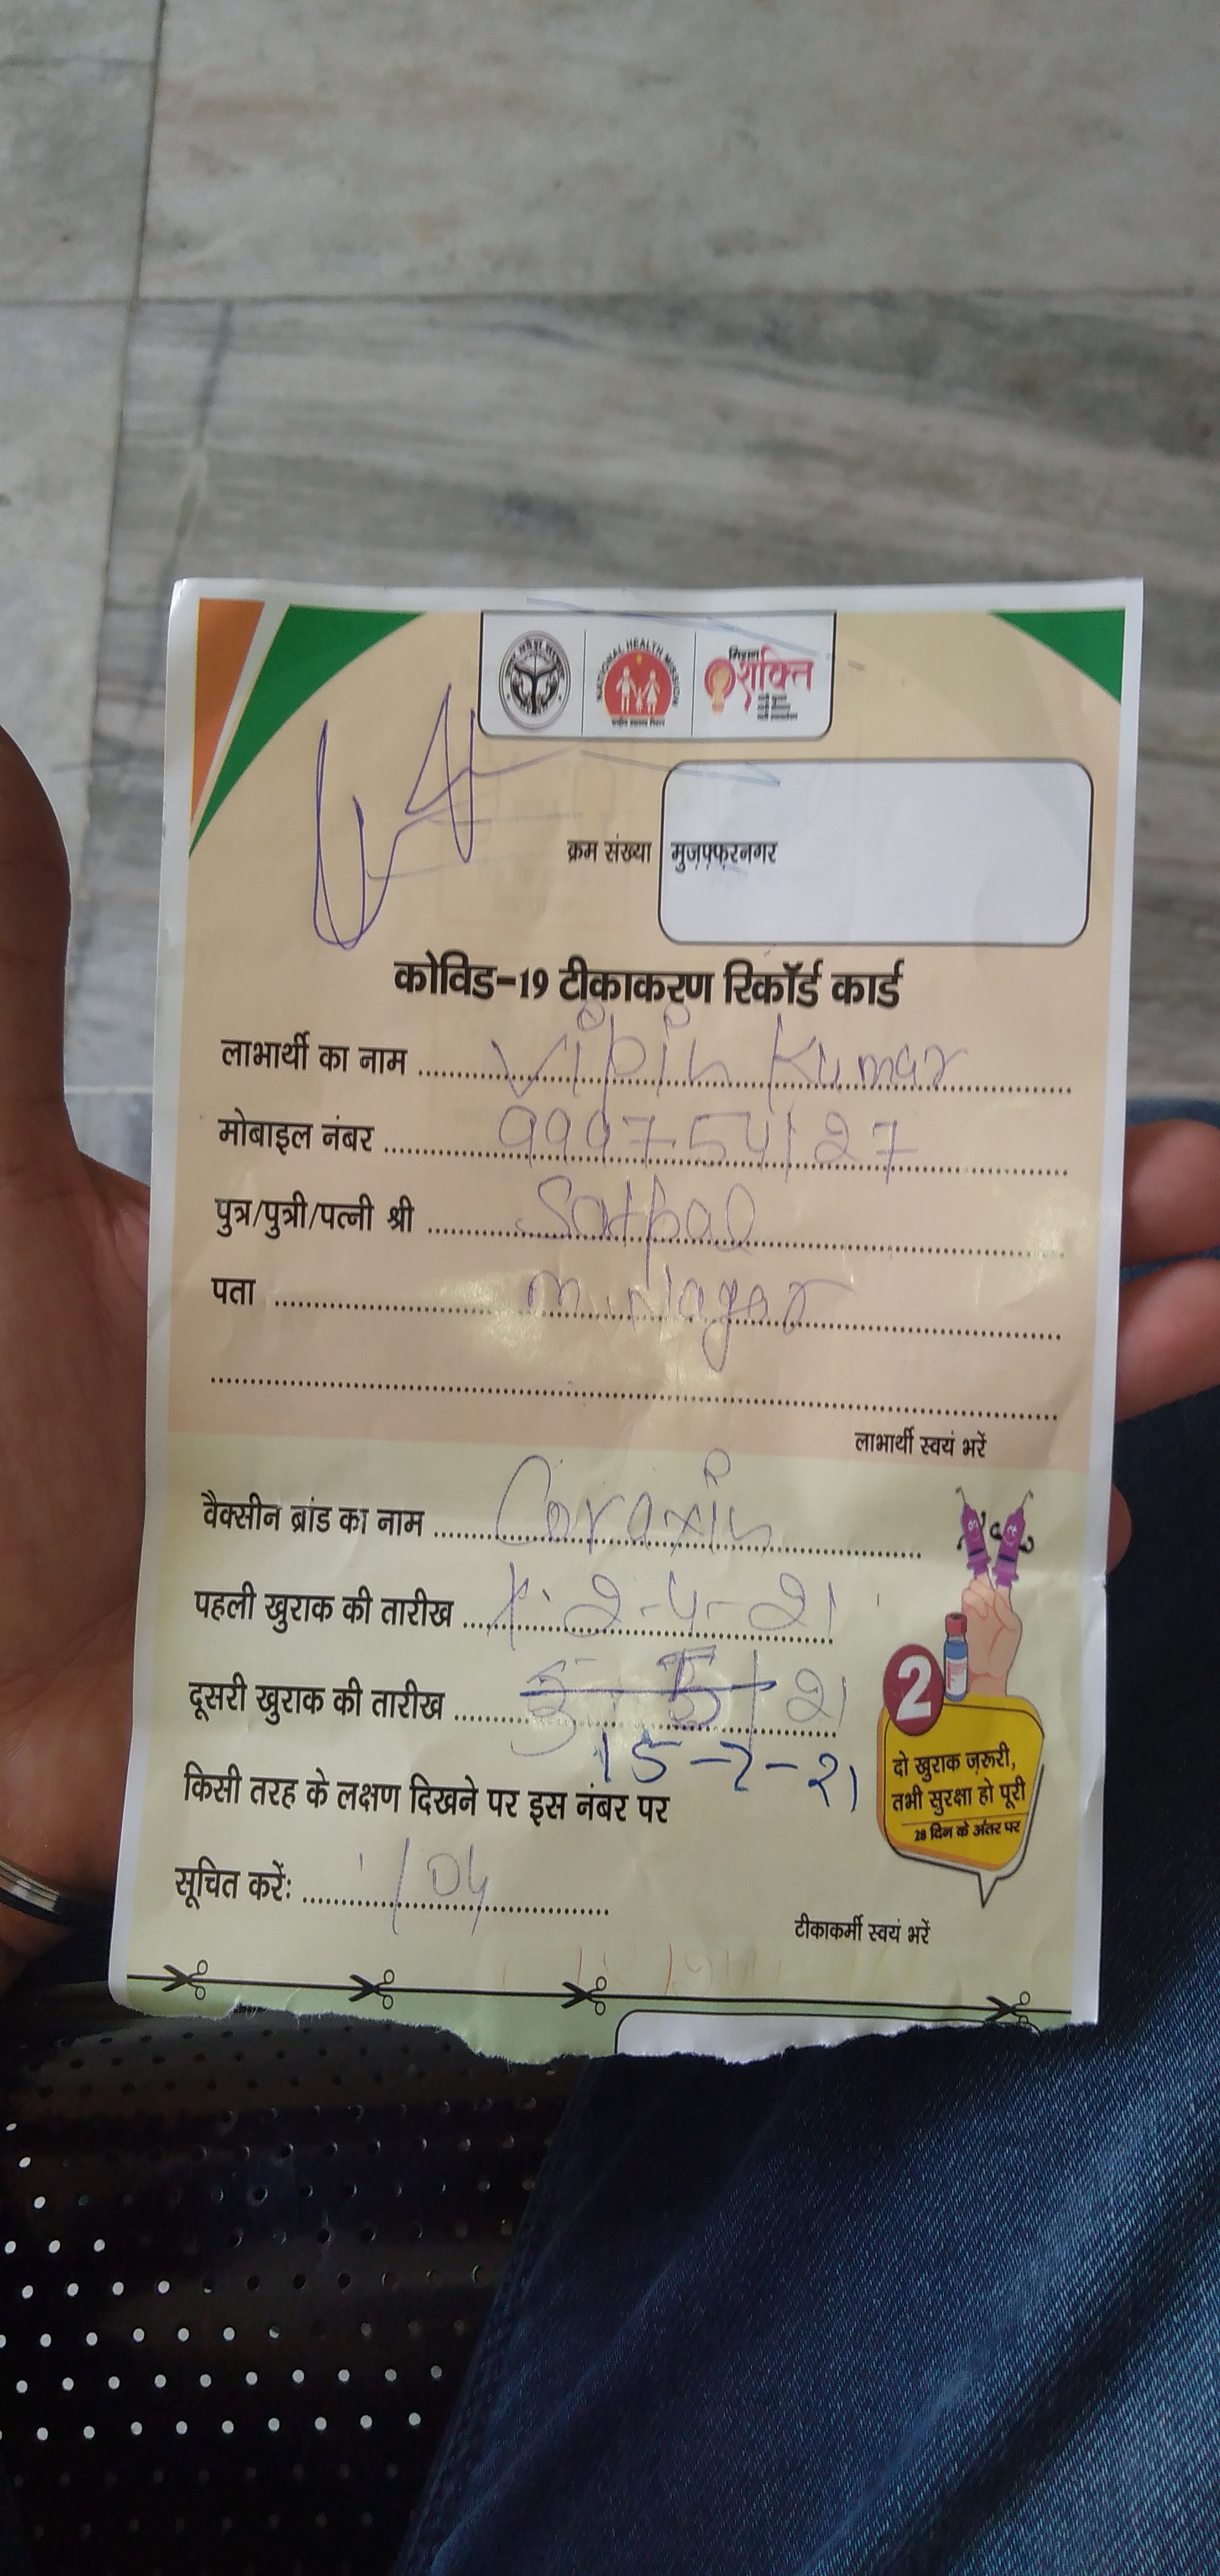 NATIONAL HEALTH MISSION
मिशन
शक्ति
क्रम संख्या मुज़फ़्फ़रनगर
कोविड-19 टीकाकरण रिकॉर्ड कार्ड
लाभार्थी का नाम Vipin Kumar
मोबाइल नंबर 9997554127
पुत्र/पुत्री/पत्नी श्री Satpal
पता m. Nagar
लाभार्थी स्वयं भरें
वैक्सीन ब्रांड का नाम Covaxin
पहली खुराक की तारीख 2-4-21
दूसरी खुराक की तारीख 21
15-7-21
किसी तरह के लक्षण दिखने पर इस नंबर पर
सूचित करें: 104
2
दो खुराक ज़रूरी,
तभी सुरक्षा हो पूरी
28 दिन के अंतर पर
टीकाकर्मी स्वयं भरें